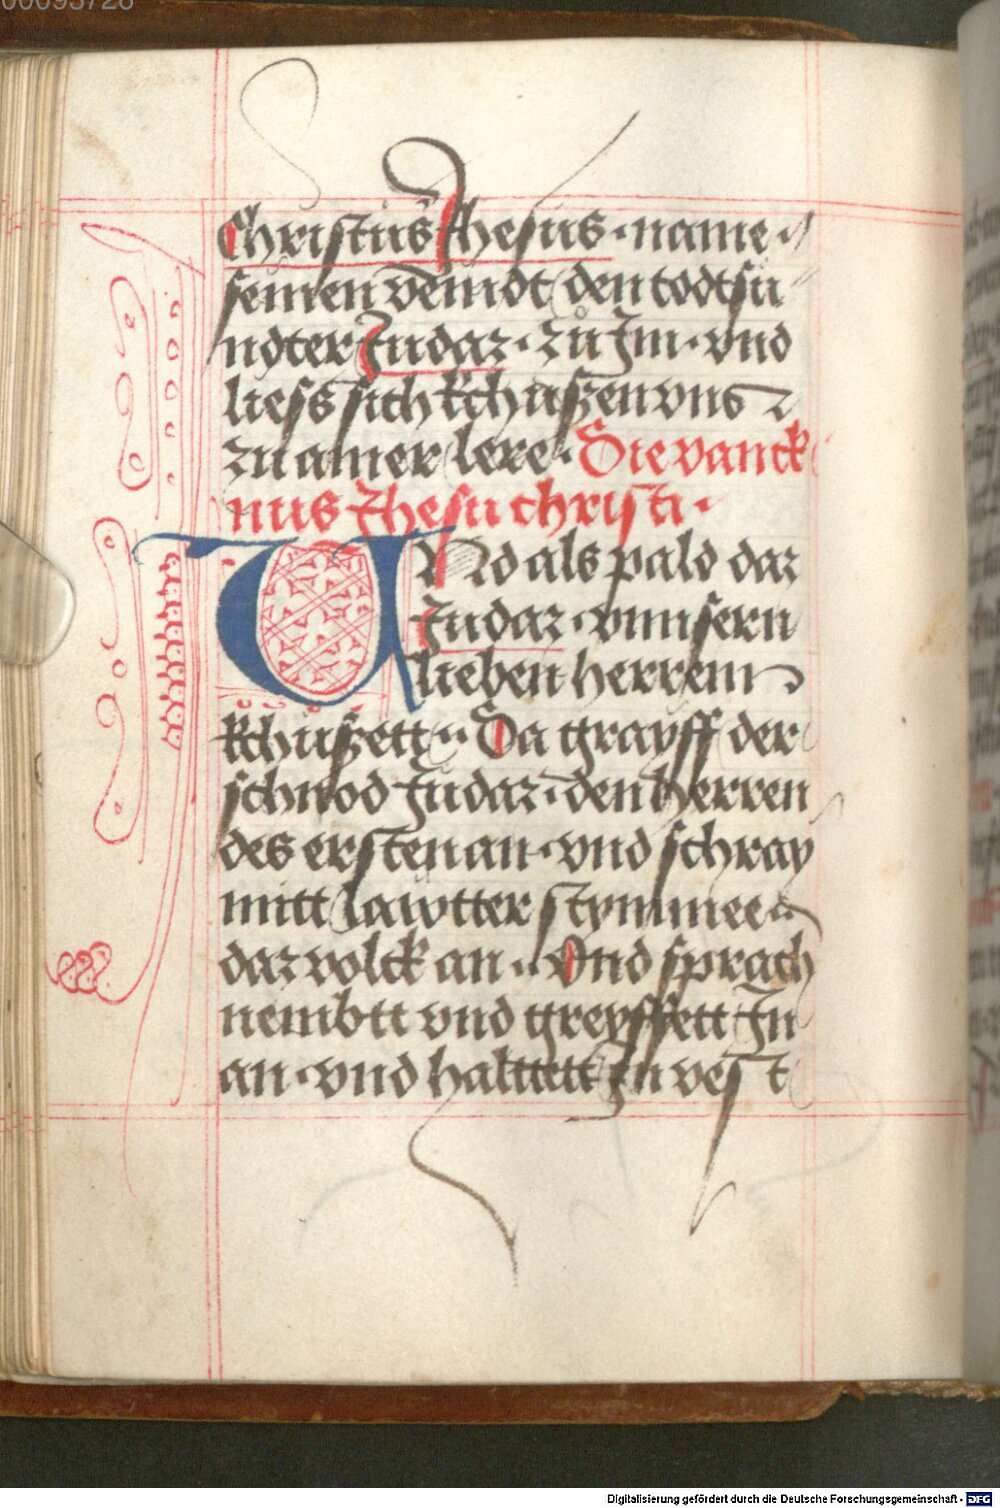 00093728
Christus Jhesus · name ·
seinen veindt den todtsu
ndter Judaz · zů Im · vnd
liess sich kchuszen vns
zu ainer lere · Die vanck
nus Jhesu christi ·
VNd als pald daz
Judaz · vnnsern
lieben herrenn
kchuszett · Da grayff der
schnod Judaz · den herren
des ersten an · vnd schray
mitt lawtter stymmee
daz volck an · Vnd sprach
nembtt vnd greyffett In
an · vnd halttett In vest
Digitalisierung gefördert durch die Deutsche Forschungsgemeinschaft - DFG